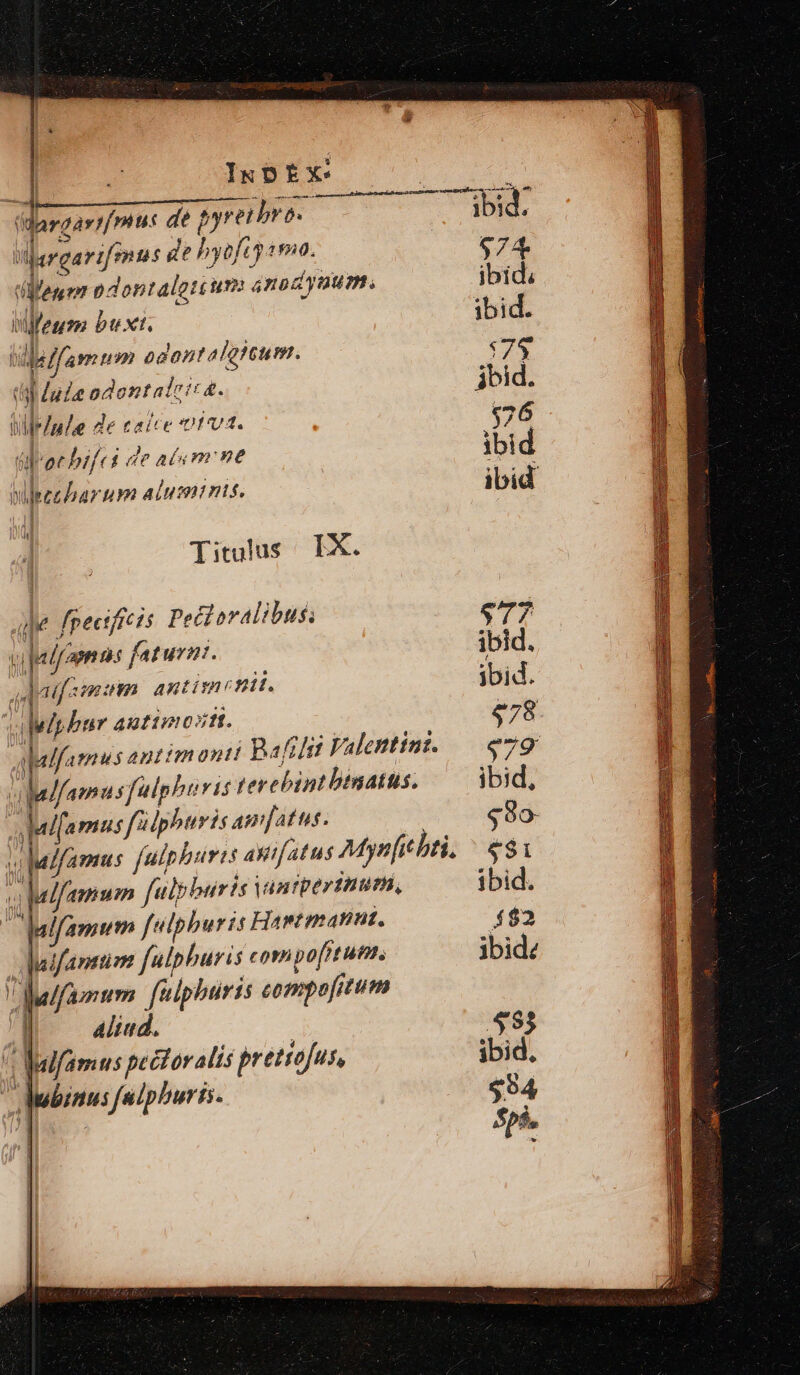 INDEX.
Gargarismus de pyrethro. ibid.
Gargarismus de hyoscyamo. 574
Oleum odontalgicum anodynum. ibid.
Oleum buxi. ibid.
Balsamum odontalgicum. 575
odontalgica. ibid.
de calce viva. 576
Trochisci de alumine ibid
Saccharum aluminis. ibid
Titulus IX.
De specificis Pectoralibus. 577
Balsamus saturni. ibid.
Balsamum antimonii. ibid.
Sulphur antimonii. 578
Balsamus antimonii Basilii Valentini. 579
Balsamus sulphuris terebinthinatus. ibid,
Balsamus sulphuris anisatus. 580
Balsamus sulphuris anisatus Mynsichti. 581
Balsamum sulphuris juniperinum, ibid.
Balsamum sulphuris Hartmanni. 582
Balsamum sulphuris compositum. ibid.
Balsamum sulphuris compositum
aliud. 583
Balsamus pectoralis pretiosus, ibid.
sulphuris. 584
Spi-